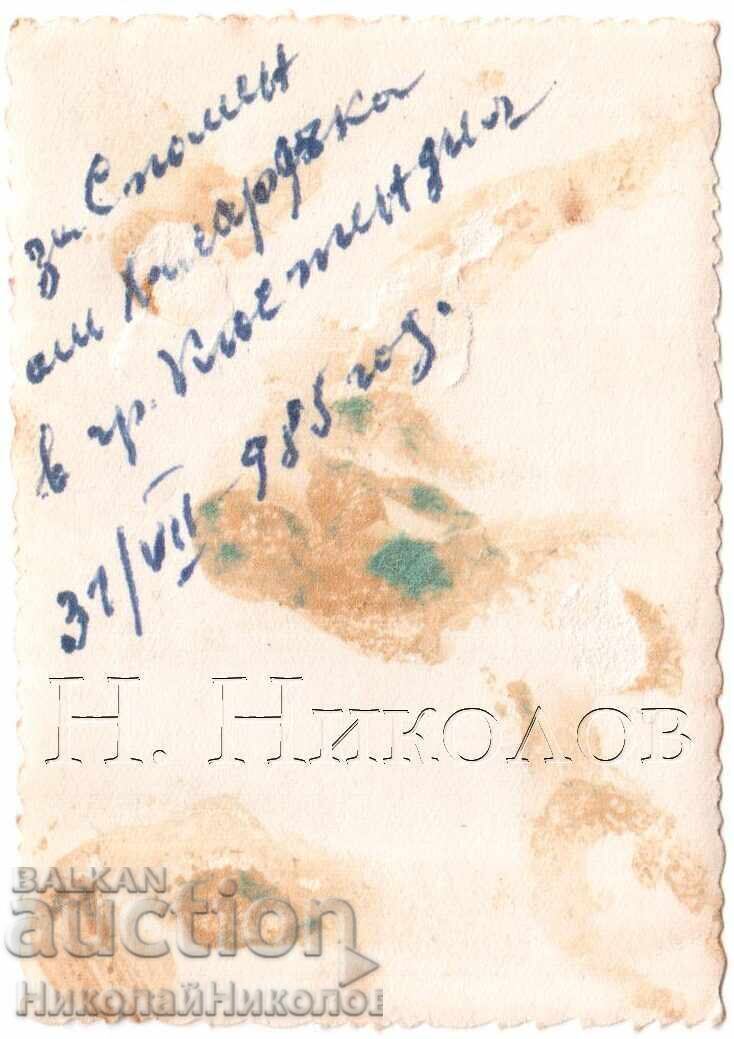 за Спомен
от Хисарлъка
в гр. Кюстендил
31/VII 985 год.
Н. Николов
BALKAN
auction
НиколайНиколов